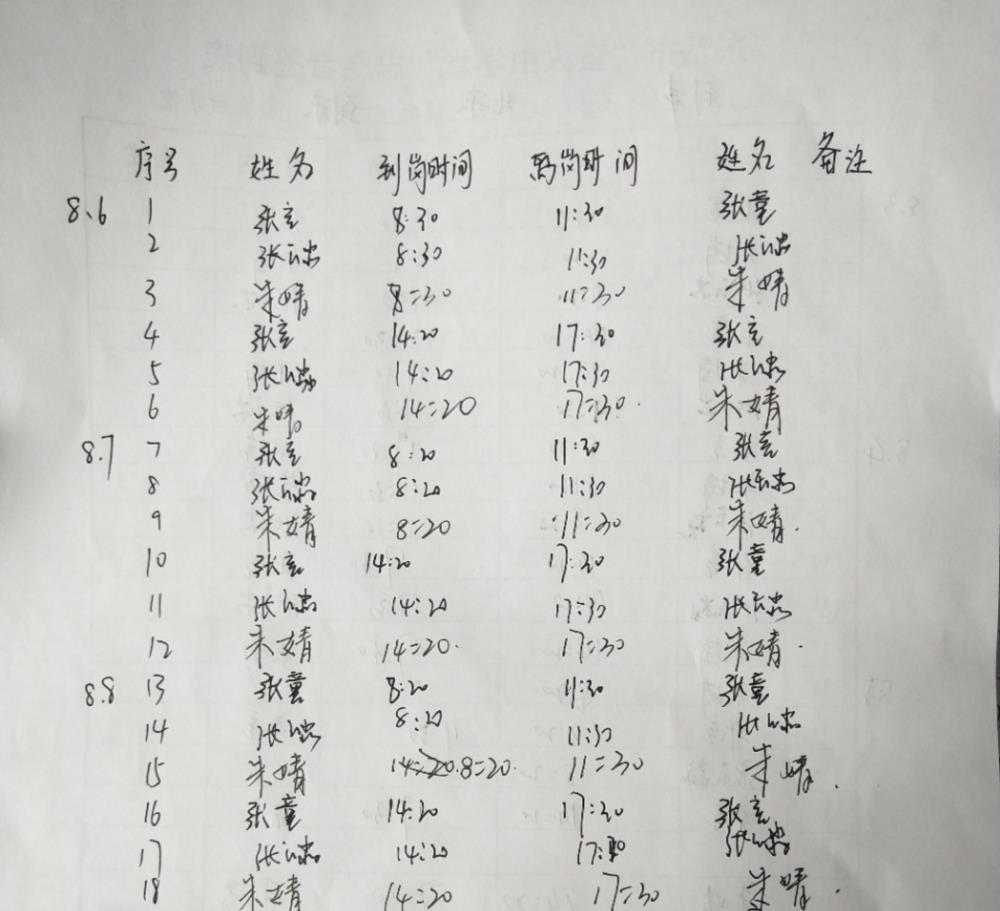 序号 姓名 到岗时间 离岗时间 姓名 备注
8.6 1 张童 8:30 11:30 张童
2 张 8:30 11:30 张
3 朱婧 8:30 11:30 朱婧
4 张童 14:20 17:30 张童
5 张 14:20 17:30 张
6 朱婧 14:20 17:30 朱婧
8.7 7 张童 8:20 11:30 张童
8 张 8:20 11:30 张
9 朱婧 8:20 11:30 朱婧
10 张童 14:20 17:30 张童
11 张 14:20 17:30 张
12 朱婧 14:20 17:30 朱婧
8.8 13 张童 8:20 11:30 张童
14 张 8:20 11:30 张
15 朱婧 14:20 8:20 11:30 朱婧
16 张童 14:20 17:30 张童
17 张 14:20 17:30 张
18 朱婧 14:20 17:30 朱婧